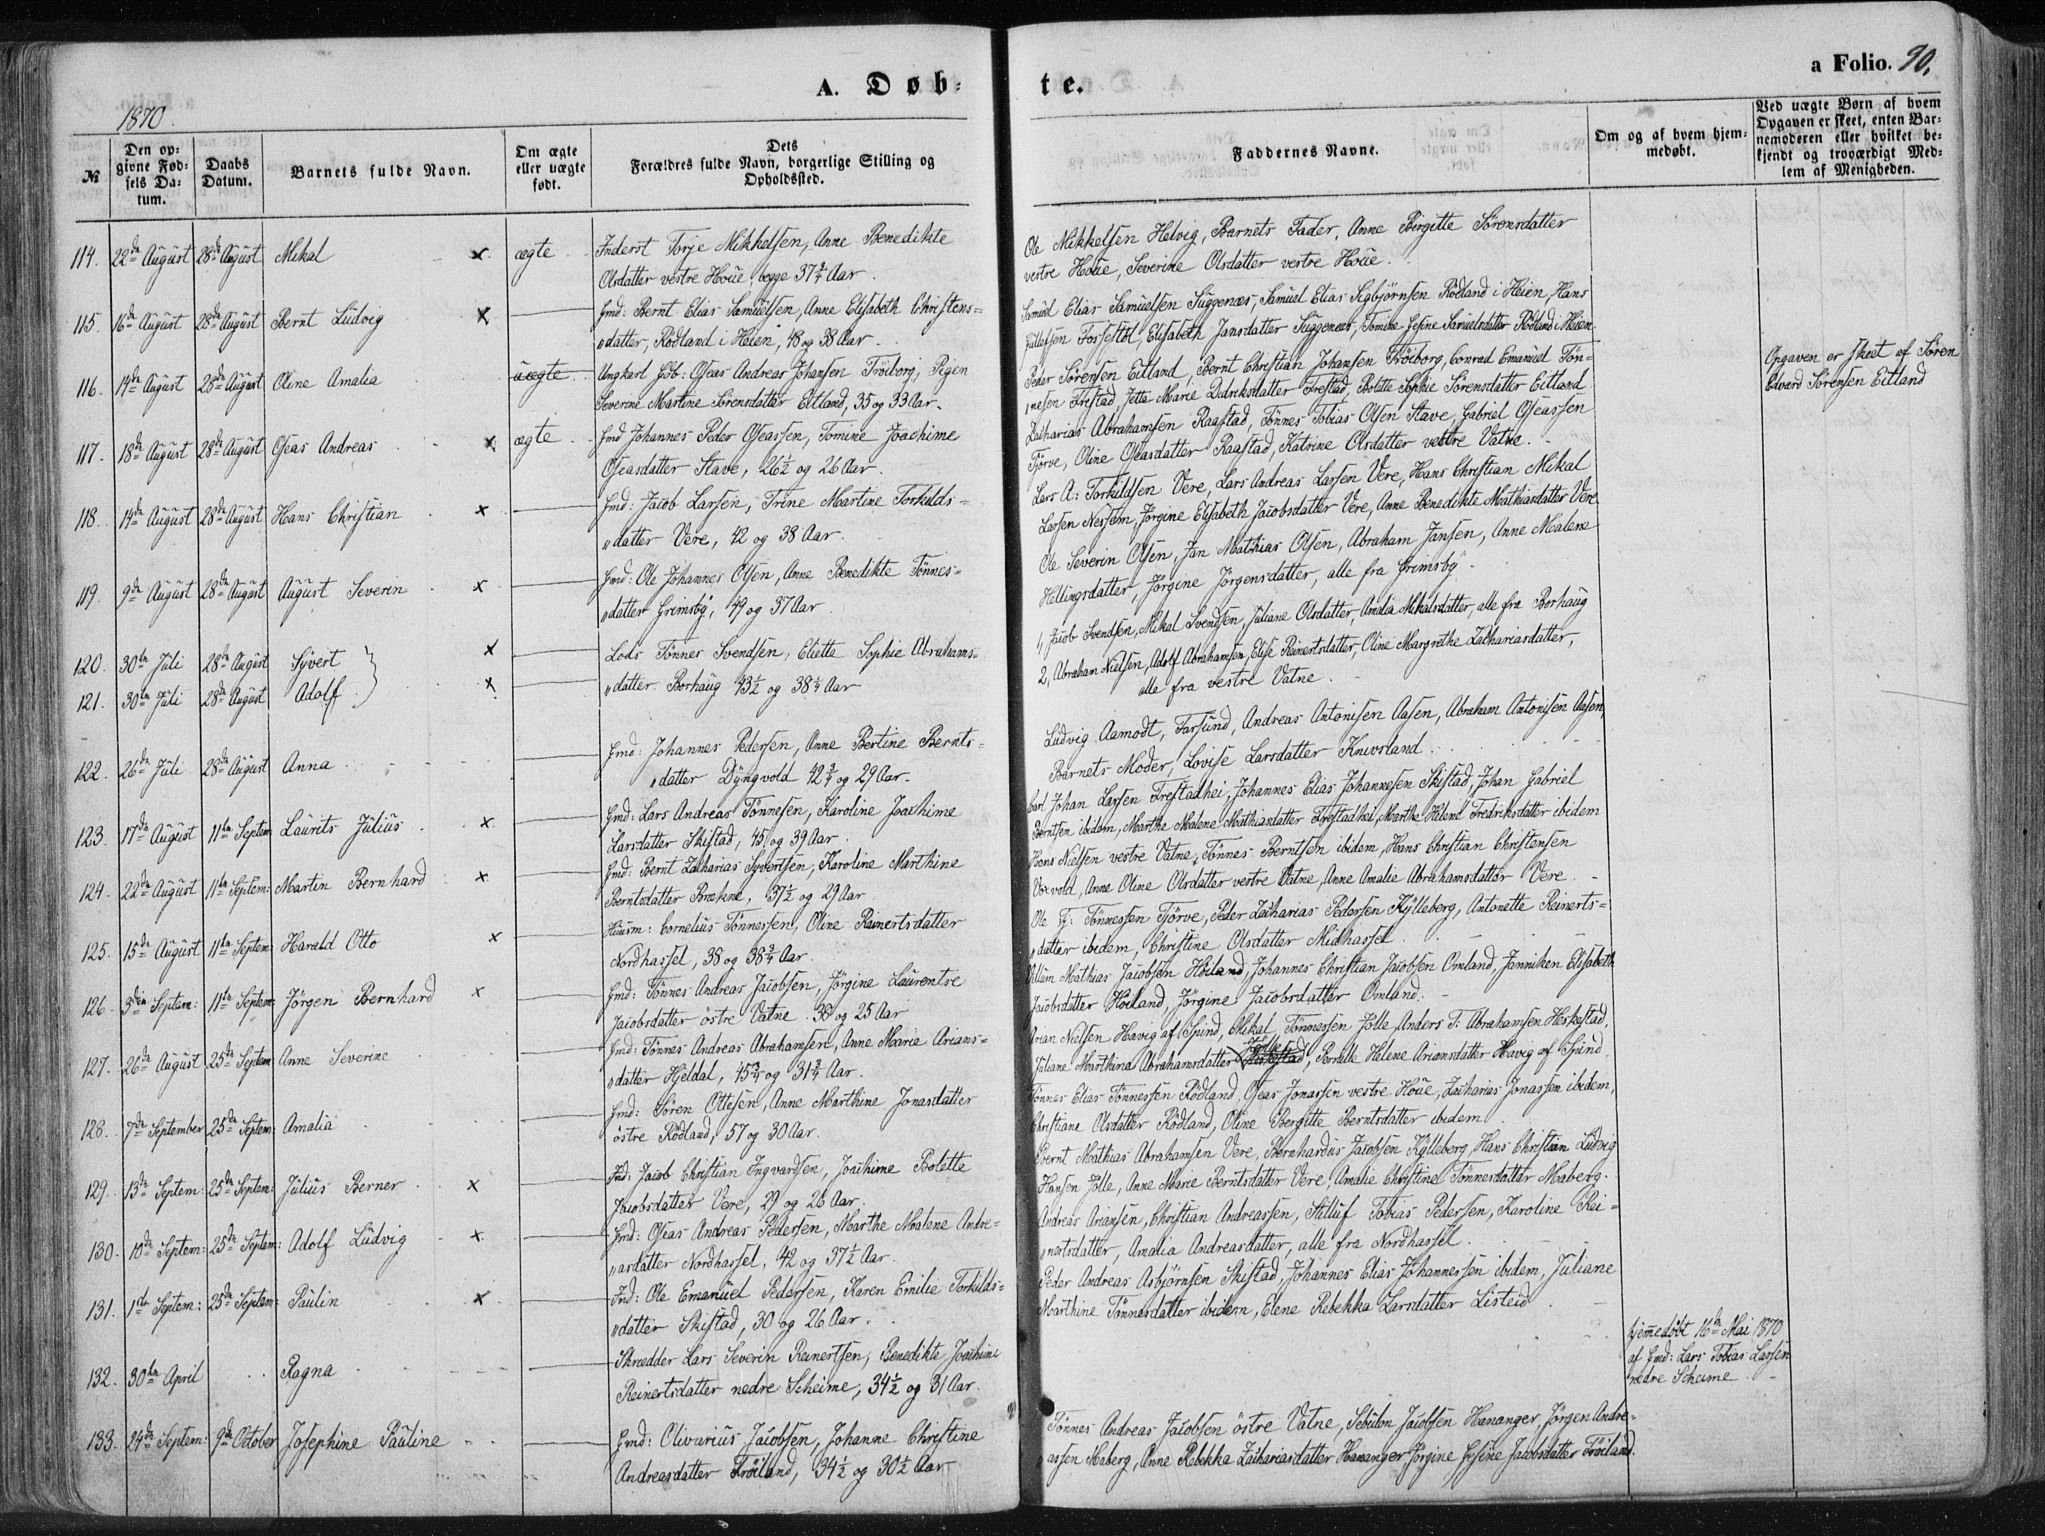 A. Døb-
te.
a Folio. 90.
1870.
№
Den op-
givne Fød-
sels Da-
tum.
Daabs
Datum.
Barnets fulde Navn.
Om ægte
eller uægte
født.
Dets
Forældres fulde Navn, borgerlige Stilling og
Opholdssted.
Faddernes Navne.
Om og af hvem hjem-
medøbt.
Ved uægte Børn af hvem
Opgaven er skeet, enten Bar-
nemoderen eller hvilket be-
kjendt og troværdigt Med-
lem af Menigheden.
114. 22de August 28de August Mikal x ægte
Inderst Torje Mikkelsen, Anne Benedikte
Olsdatter vestre Houe, begge 37 3/4 Aar.
Ole Mikkelsen Helvig, Barnets Fader, Anne Birgitte Sörensdatter
vestre Houe, Severine Olsdatter vestre Houe.
115. 16de August 28de August Bernt Ludvig x
Gmd: Bernt Elias Samuelsen, Anne Elisabeth Christens=
"datter, Rödland i Heien, 48 og 38 Aar.
Samuel Elias Samuelsen Suggenæs, Samuel Elias Sigbjörnsen Rödland i Heien, Hans
Gullefsen Fossestöl, Elisabeth Jansdatter Suggenæs, Tomine Gesine Samuelsdatter Rödland i Heien.
116. 14de August 28de August Oline Amalia uægte
Ungkarl Söb: Oseas Andreas Johansen Tröiborg, Pigen
Severine Martine Sörensdatter Eitland, 35 og 33 Aar.
Peder Sörensen Eitland, Bernt Christian Johansen Tröiborg, Conrad Emanuel Tön-
"nesen Frestad, Jette Marie Didriksdatter Frestad, Bolette Sophie Sörensdatter Eitland
Opgaven er skeet af Sören
Edvard Sörensen Eitland
117. 18de August 28de August Oseas Andreas x ægte
Gmd Johannes Peder Oseassen, Tomine Joachime
Oseasdatter Stave, 26 1/2 og 26 Aar.
Zacharias Abrahamsen Raastad, Tönnes Tobias Olsen Stave, Gabriel Oseassen
Tjörve, Oline Oseasdatter Raastad, Katrine Olsdatter vestre Vatne.
118. 14de August 28de August Hans Christian x
Gmd: Jacob Larsen, Trine Martine Torkilds=
"datter Vere, 42 og 38 Aar.
Lars A: Torkildsen Vere, Lars Andreas Larsen Vere, Hans Christian Mikal
Larsen Nessem, Jörgine Elisabeth Jacobsdatter Vere, Anne Benedikte Mathiasdatter Vere.
119. 9de August 28de August August Severin x
Gmd: Ole Johannes Olsen, Anne Benedikte Tönnes=
"datter Grimsby, 49 og 37 Aar.
Ole Severin Olsen, Jan Mathias Olsen, Abraham Jansen, Anne Malene
Hellingsdatter, Jörgine Jörgensdatter, alle fra Grimsby.
120. 30te Juli 28de August Syvert x
121. 30te Juli 28de August Adolf x
Lods Tönnes Svendsen, Eliette Sophie Abrahams=
"datter Borhaug 43 1/2 og 38 1/4 Aar
1, Jacob Svendsen, Mikal Svendsen, Juliane Olsdatter, Amalia Mikalsdatter, alle fra Borhaug
2, Abraham Nielsen, Adolf Abrahamsen, Elise Reinertsdatter, Oline Margrethe Zachariasdatter,
alle fra vestre Vatne.
122. 26de Juli 28de August Anna
Gmd: Johannes Pedersen, Anne Bertine Bernts=
"datter Dyngvold 42 3/4 og 29 Aar.
Ludvig Aamodt, Farsund, Andreas Antonisen Aasen, Abraham Antonisen Aasen,
Barnets Moder, Lovise Larsdatter Knivsland.
123. 17de August 11te Septem: Laurits Julius x
Gmd: Lars Andreas Tönnesen, Karoline Joachime
Larsdatter Skistad, 45 og 39 Aar.
Carl Johan Larsen Frestadhei, Johannes Elias Johannesen Skistad, Johan Gabriel
Berntsen ibidem, Marthe Malene Mathiasdatter Frestadhei, Marthe Helene Fredriksdatter ibidem
124. 22de August 11te Septem: Martin Bernhard x
Gmd: Bernt Zacharias Syvertsen, Karoline Marthine
Berntsdatter Brækne, 37 1/2 og 29 Aar
Hans Nielsen vestre Vatne, Tönnes Berntsen ibidem, Hans Christian Christensen
Voxvold, Anne Oline Olsdatter vestre Vatne, Anne Amalie Abrahamsdatter Vere.
125. 15de August 11te Septem: Harald Otto x
Huusm: Cornelius Tönnessen, Oline Reinertsdatter
Nordhassel, 38 og 38 3/4 Aar.
Ole Tj: Tönnessen Tjörve, Peder Zacharias Pedersen Kylleberg, Antonette Reinerts=
"datter ibidem, Christine Olsdatter Midhassel.
126. 3die Septem: 11te Septem: Jörgen Bernhard x
Gmd: Tönnes Andreas Jacobsen, Jörgine Laurentse
Jacobsdatter östre Vatne 38 og 25 Aar
Villum Mathias Jacobsen Höiland, Johannes Christian Jacobsen Omland, Janniken Elisabeth
Jacobsdatter Höiland, Jörgine Jacobsdatter Omland.
127. 26de August 25de Septem: Anne Severine
Gmd: Tönnes Andreas Abrahamsen, Anne Marie Arians=
"datter Hjeldal, 45 3/4 og 31 3/4 Aar.
Arian Nielsen Havig af Spind, Mikal Tönnessen Jölle, Anders T: Abrahamsen Heskestad,
Juliane Marthine Abrahamsdatter Jölle, Pernille Helene Ariansdatter Havig af Spind.
128. 7de September 25de Septem: Amalia
Gmd: Sören Ottesen, Anne Marthine Jonasdatter
östre Rödland, 57 og 30 Aar.
Tönnes Elias Tönnessen Rödland, Oseas Jonassen vestre Houe, Zacharias Jonassen ibidem,
Christiane Olsdatter Rödland, Oline Bergitte Berntsdatter ibidem.
129. 13de Septem: 25de Septem: Julius Berner x
Ind: Jacob Christian Ingvardsen, Joachime Bolette
Jacobsdatter Vere, 29 og 26 Aar.
Bernt Mathias Abrahamsen Vere, Bernhardus Jacobsen Kylleberg, Hans Christian Ludvig
Hansen Jölle, Anne Marie Berntsdatter Vere, Amalie Christine Tönnesdatter Maberg.
130. 10de Septem: 25de Septem: Adolf Ludvig x
Gmd: Oseas Andreas Pedersen, Marthe Malene Andre=
"asdatter Nordhassel, 42 og 37 1/2 Aar.
Andreas Ariansen, Christian Andreassen, Stilluf Tobias Pedersen, Karoline Rei=
"nertsdatter, Amalia Andreasdatter, alle fra Nordhassel.
131. 1ste Septem: 25de Septem: Paulin x
Ind: Ole Emanuel Pedersen, Karen Emilie Torkilds=
"datter Skistad, 30 og 26 Aar.
Peder Andreas Asbjörnsen Skistad, Johannes Elias Johannessen ibidem, Juliane
Marthine Tönnesdatter ibidem, Elene Rebekka Larsdatter Listeid.
132. 30te April Ragna
Skrædder Lars Severin Reinertsen, Benedikte Joachime
Reinertsdatter nedre Scheime, 34 1/2 og 31 Aar.
hjemmedöbt 16de Mai 1870
af Gmd: Lars Tobias Larsen
nedre Scheime.
133. 24de Septem: 9de October Josephine Pauline
Gmd: Olivarius Jacobsen, Johanne Christine
Andreasdatter Tröiland, 34 1/2 og 30 1/2 Aar
Tönnes Andreas Jacobsen östre Vatne, Sebulon Jacobsen Hananger, Jörgen Andre=
"assen Maberg, Anne Rebekka Zachariasdatter Hananger, Jörgine Gesine Jacobsdatter Tröiland.